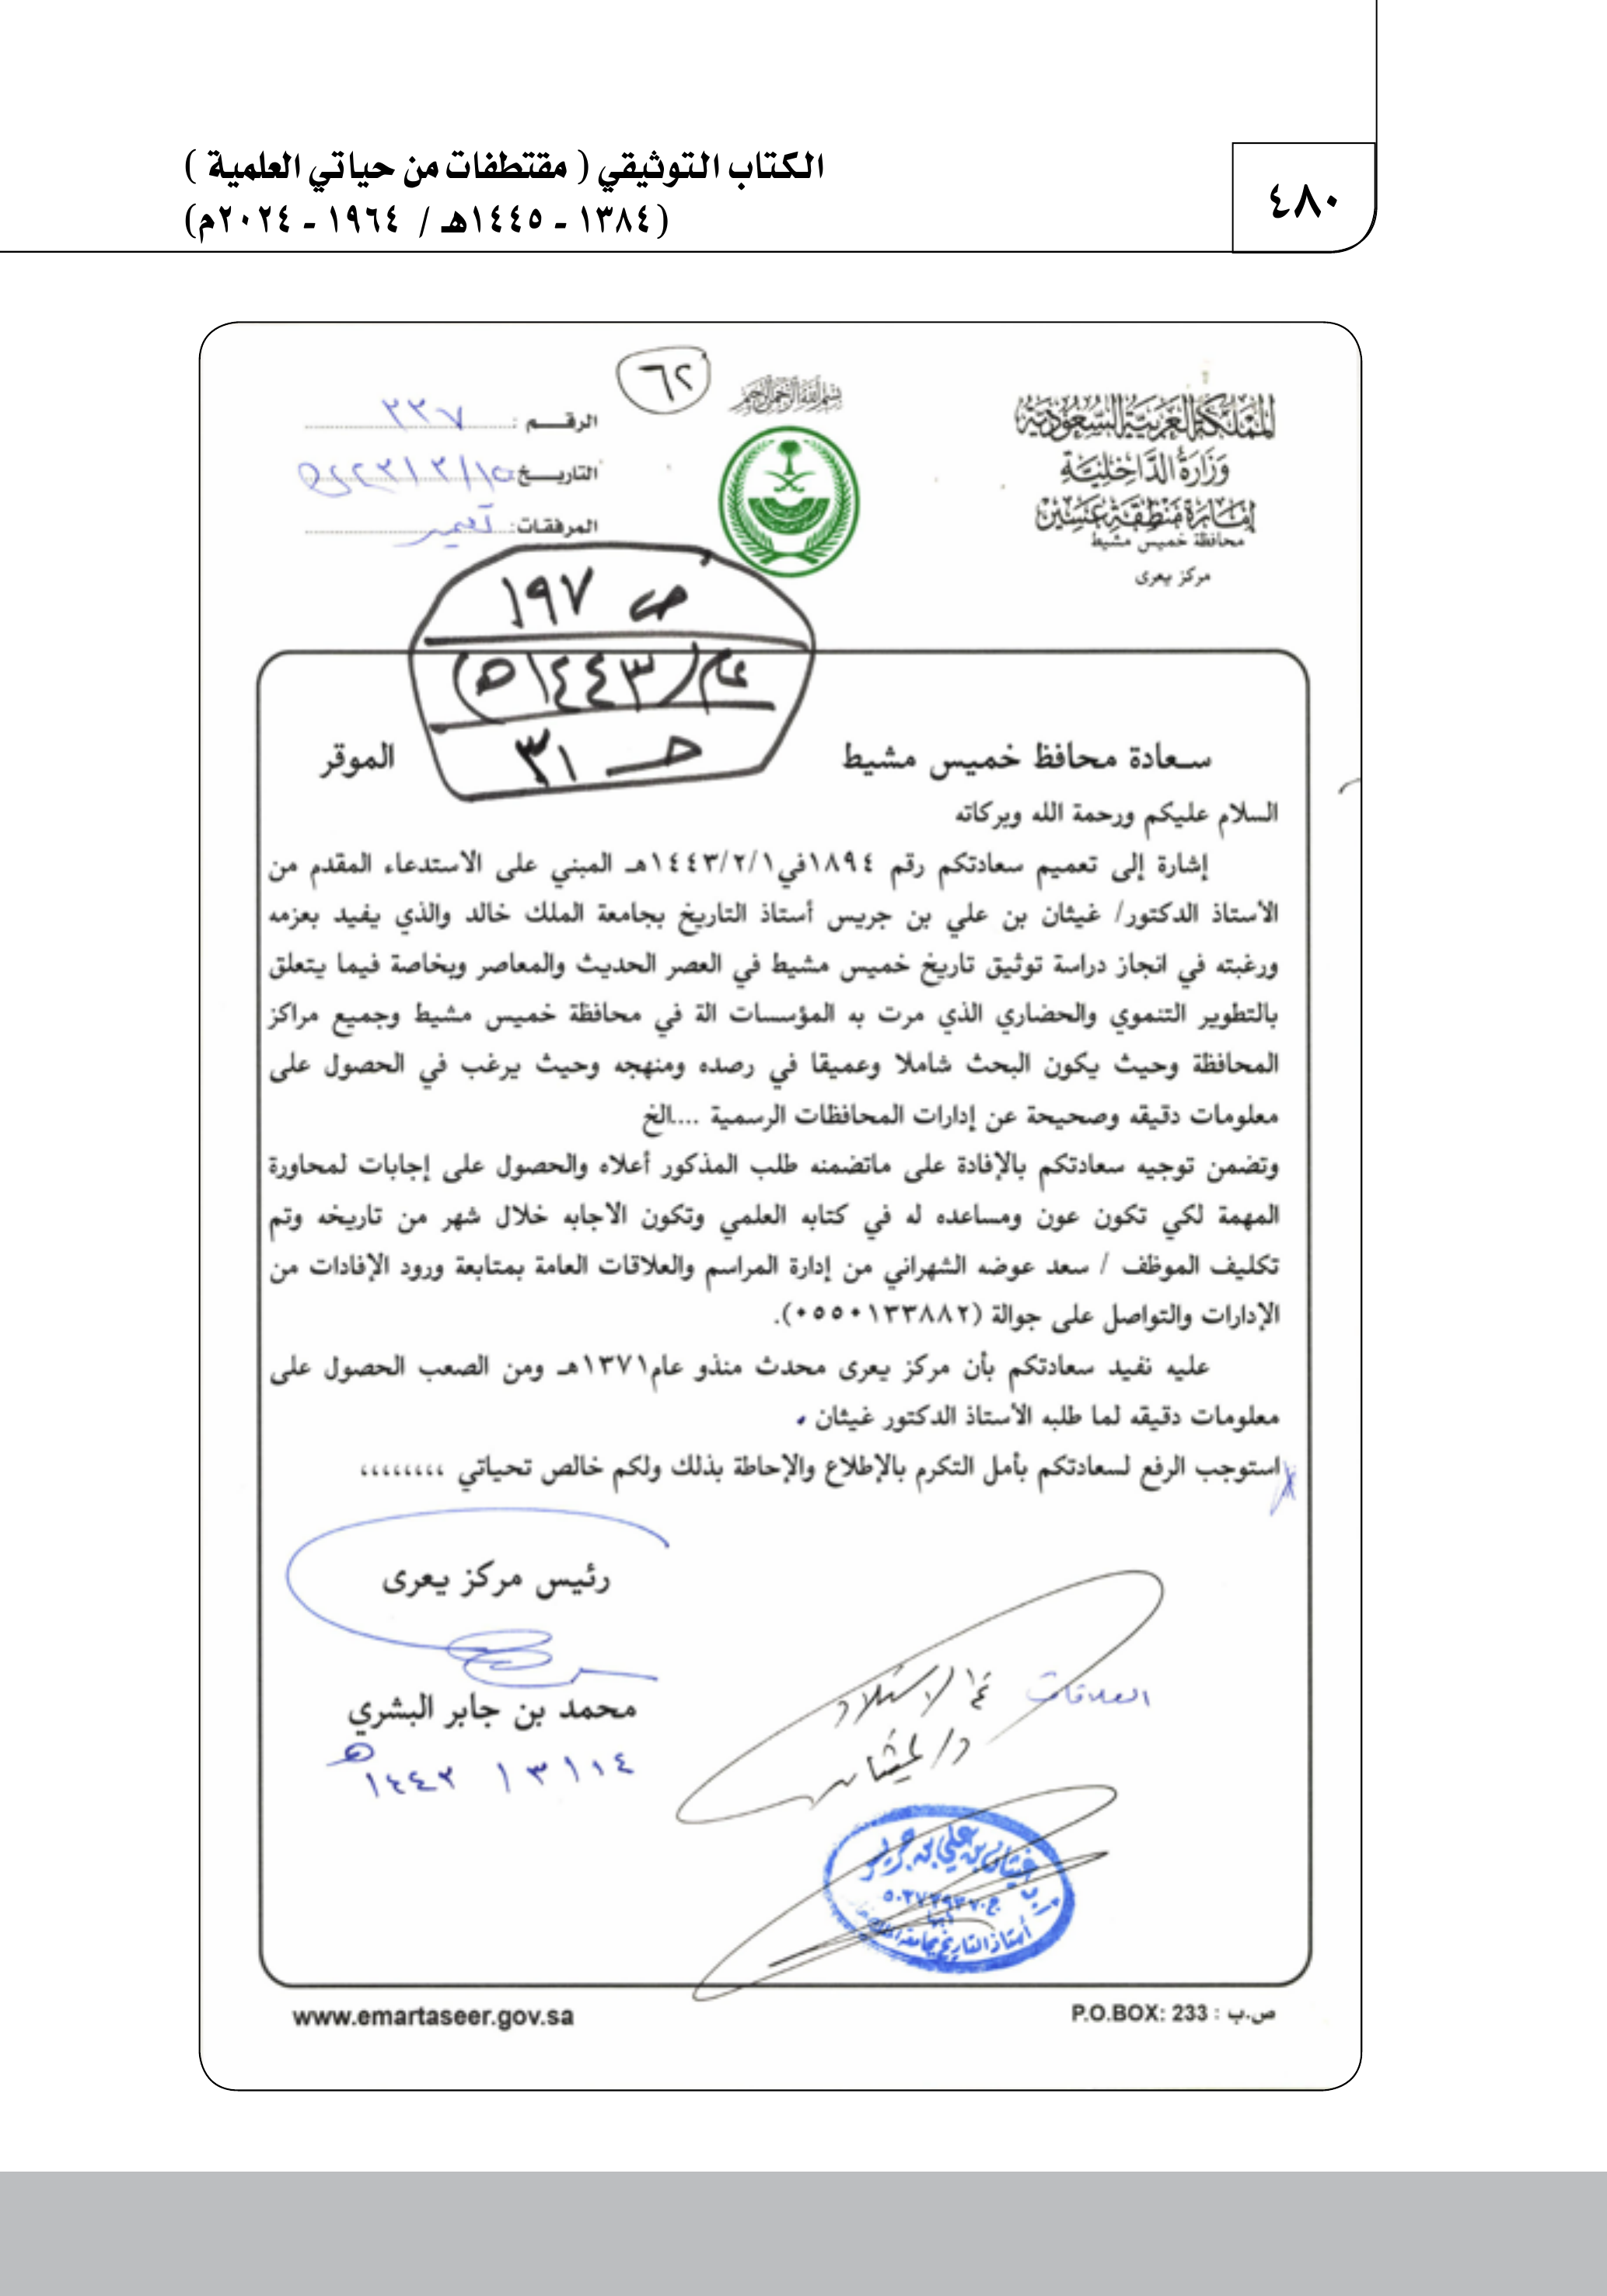 ٤٨٠
الكتاب التوثيقي ( مقتطفات من حياتي العلمية )
(١٣٨٤ - ١٤٤٥هـ / ١٩٦٤ - ٢٠٢٤م)
المملكة العربية السعودية
وزارة الداخلية
إمارة منطقة عسير
محافظة خميس مشيط
مركز يعرى
بسم الله الرحمن الرحيم
٦٢
الرقـــم : ٢٣٧
التاريـــخ:
المرفقات:
ص ١٩٧
عام (١٤٤٣هـ)
حـ ٣١
سعادة محافظ خميس مشيط الموقر
السلام عليكم ورحمة الله وبركاته
إشارة إلى تعميم سعادتكم رقم ١٨٩٤في١٤٤٣/٢/١هـ المبني على الاستدعاء المقدم من
الأستاذ الدكتور/ غيثان بن علي بن جريس أستاذ التاريخ بجامعة الملك خالد والذي يفيد بعزمه
ورغبته في انجاز دراسة توثيق تاريخ خميس مشيط في العصر الحديث والمعاصر وبخاصة فيما يتعلق
بالتطوير التنموي والحضاري الذي مرت به المؤسسات الة في محافظة خميس مشيط وجميع مراكز
المحافظة وحيث يكون البحث شاملا وعميقا في رصده ومنهجه وحيث يرغب في الحصول على
معلومات دقيقه وصحيحة عن إدارات المحافظات الرسمية ....الخ
وتضمن توجيه سعادتكم بالإفادة على ماتضمنه طلب المذكور أعلاه والحصول على إجابات لمحاورة
المهمة لكي تكون عون ومساعده له في كتابه العلمي وتكون الاجابه خلال شهر من تاريخه وتم
تكليف الموظف / سعد عوضه الشهراني من إدارة المراسم والعلاقات العامة بمتابعة ورود الإفادات من
الإدارات والتواصل على جوالة (٠٥٥٠١٣٣٨٨٢).
عليه نفيد سعادتكم بأن مركز يعرى محدث منذو عام١٣٧١هـ ومن الصعب الحصول على
معلومات دقيقه لما طلبه الأستاذ الدكتور غيثان .
استوجب الرفع لسعادتكم بأمل التكرم بالإطلاع والإحاطة بذلك ولكم خالص تحياتي ،،،،،،،،
رئيس مركز يعرى
محمد بن جابر البشري
١٤٤٣/٣/١٤هـ
العلاقات
أ.د. غيثان بن علي بن جريس
أبها
أستاذ التاريخ بجامعة الملك خالد
www.emartaseer.gov.sa
P.O.BOX: 233 : ص.ب